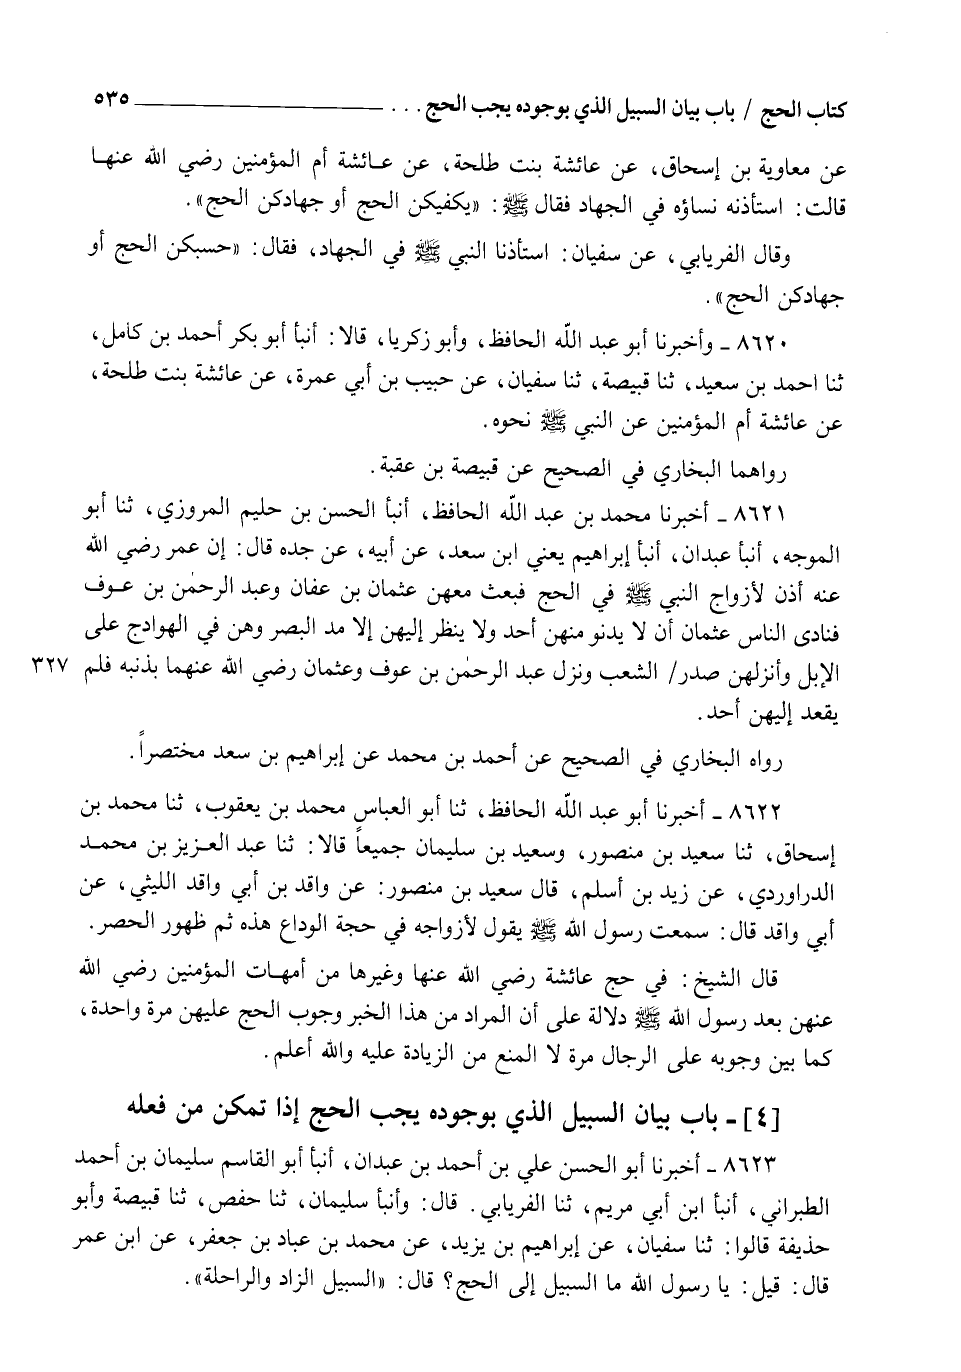 كتاب الحج / باب بيان السبيل الذي بوجوده يجب الحج . . . ٥٣٥
عن معاوية بن إسحاق، عن عائشة بنت طلحة، عن عائشة أم المؤمنين رضي الله عنها
قالت: استأذنه نساؤه في الجهاد فقال ﷺ: «يكفيكن الحج أو جهادكن الحج».
وقال الفريابي، عن سفيان: استأذنا النبي ﷺ في الجهاد، فقال: «حسبكن الحج أو
جهادكن الحج».
٨٦٢٠ ـ وأخبرنا أبو عبد اللّه الحافظ، وأبو زكريا، قالا: أنبأ أبو بكر أحمد بن كامل،
ثنا احمد بن سعيد، ثنا قبيصة، ثنا سفيان، عن حبيب بن أبي عمرة، عن عائشة بنت طلحة،
عن عائشة أم المؤمنين عن النبي ﷺ نحوه.
رواهما البخاري في الصحيح عن قبيصة بن عقبة.
٨٦٢١ ـ أخبرنا محمد بن عبد اللّه الحافظ، أنبأ الحسن بن حليم المروزي، ثنا أبو
الموجه، أنبأ عبدان، أنبأ إبراهيم يعني ابن سعد، عن أبيه، عن جده قال: إن عمر رضي الله
عنه أذن لأزواج النبي ﷺ في الحج فبعث معهن عثمان بن عفان وعبد الرحمٰن بن عوف
فنادى الناس عثمان أن لا يدنو منهن أحد ولا ينظر إليهن إلا مد البصر وهن في الهوادج على
الإبل وأنزلهن صدر/ الشعب ونزل عبد الرحمٰن بن عوف وعثمان رضي الله عنهما بذنبه فلم ٣٢٧
يقعد إليهن أحد.
رواه البخاري في الصحيح عن أحمد بن محمد عن إبراهيم بن سعد مختصراً.
٨٦٢٢ ـ أخبرنا أبو عبد اللّه الحافظ، ثنا أبو العباس محمد بن يعقوب، ثنا محمد بن
إسحاق، ثنا سعيد بن منصور، وسعيد بن سليمان جميعاً قالا: ثنا عبد العزيز بن محمد
الدراوردي، عن زيد بن أسلم، قال سعيد بن منصور: عن واقد بن أبي واقد الليثي، عن
أبي واقد قال: سمعت رسول الله ﷺ يقول لأزواجه في حجة الوداع هذه ثم ظهور الحصر.
قال الشيخ: في حج عائشة رضي الله عنها وغيرها من أمهات المؤمنين رضي الله
عنهن بعد رسول الله ﷺ دلالة على أن المراد من هذا الخبر وجوب الحج عليهن مرة واحدة،
كما بين وجوبه على الرجال مرة لا المنع من الزيادة عليه والله أعلم.
[٤] ـ باب بيان السبيل الذي بوجوده يجب الحج إذا تمكن من فعله
٨٦٢٣ ـ أخبرنا أبو الحسن علي بن أحمد بن عبدان، أنبأ أبو القاسم سليمان بن أحمد
الطبراني، أنبأ ابن أبي مريم، ثنا الفريابي. قال: وأنبأ سليمان، ثنا حفص، ثنا قبيصة وأبو
حذيفة قالوا: ثنا سفيان، عن إبراهيم بن يزيد، عن محمد بن عباد بن جعفر، عن ابن عمر
قال: قيل: يا رسول الله ما السبيل إلى الحج؟ قال: «السبيل الزاد والراحلة».